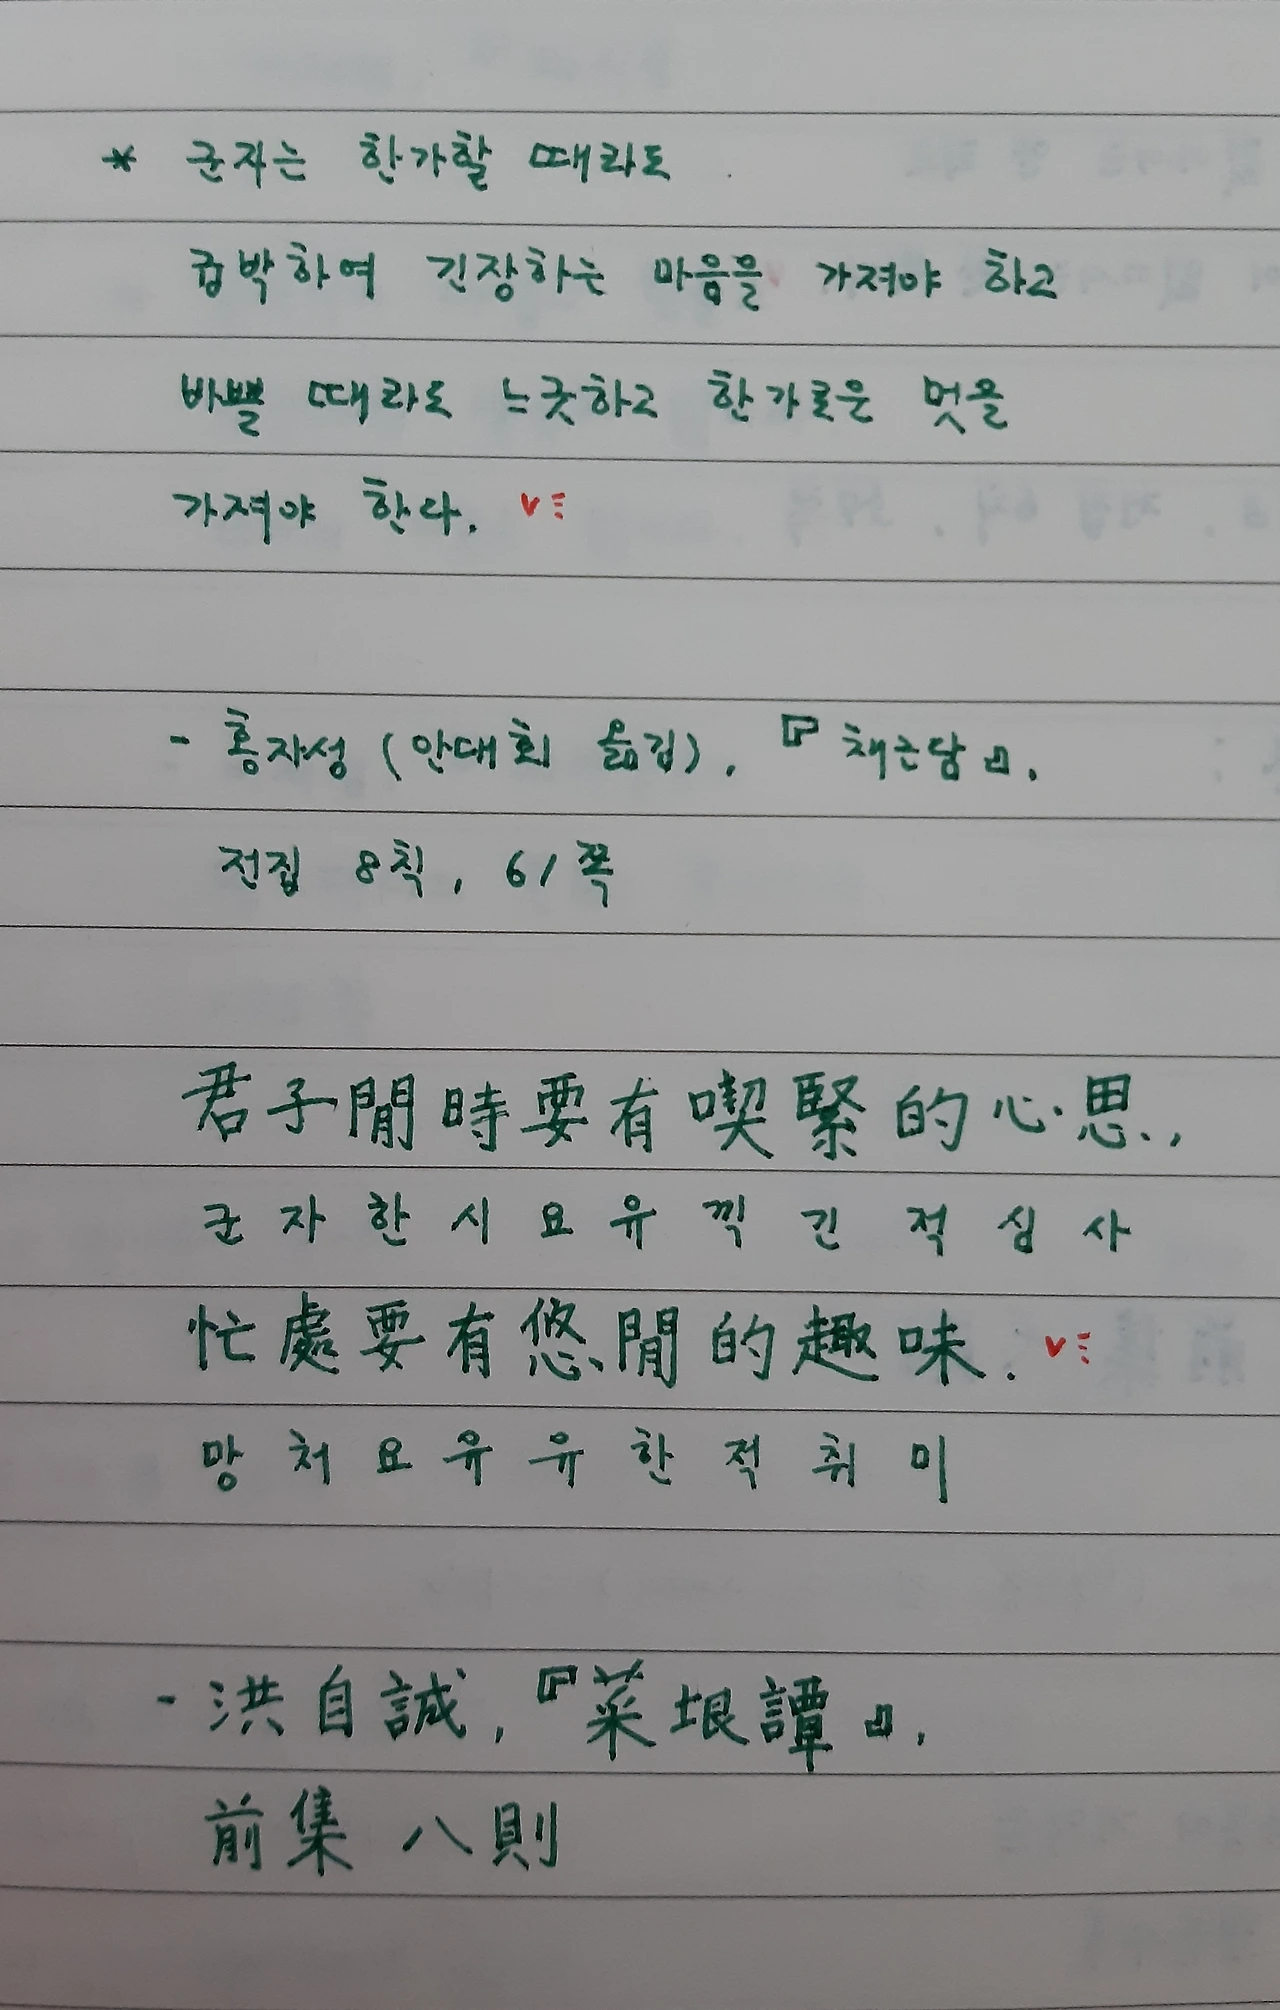 * 군자는 한가할 때라도
급박하여 긴장하는 마음을 가져야 하고
바쁠 때라도 느긋하고 한가로운 멋을
가져야 한다.
- 홍자성 (안대회 옮김), 『채근담』,
전집 8칙, 61쪽
君子閒時要有喫緊的心思,
군자한시요유끽긴적심사
忙處要有悠閒的趣味.
망처요유유한적취미
- 洪自誠, 『菜垠譚』,
前集 八則